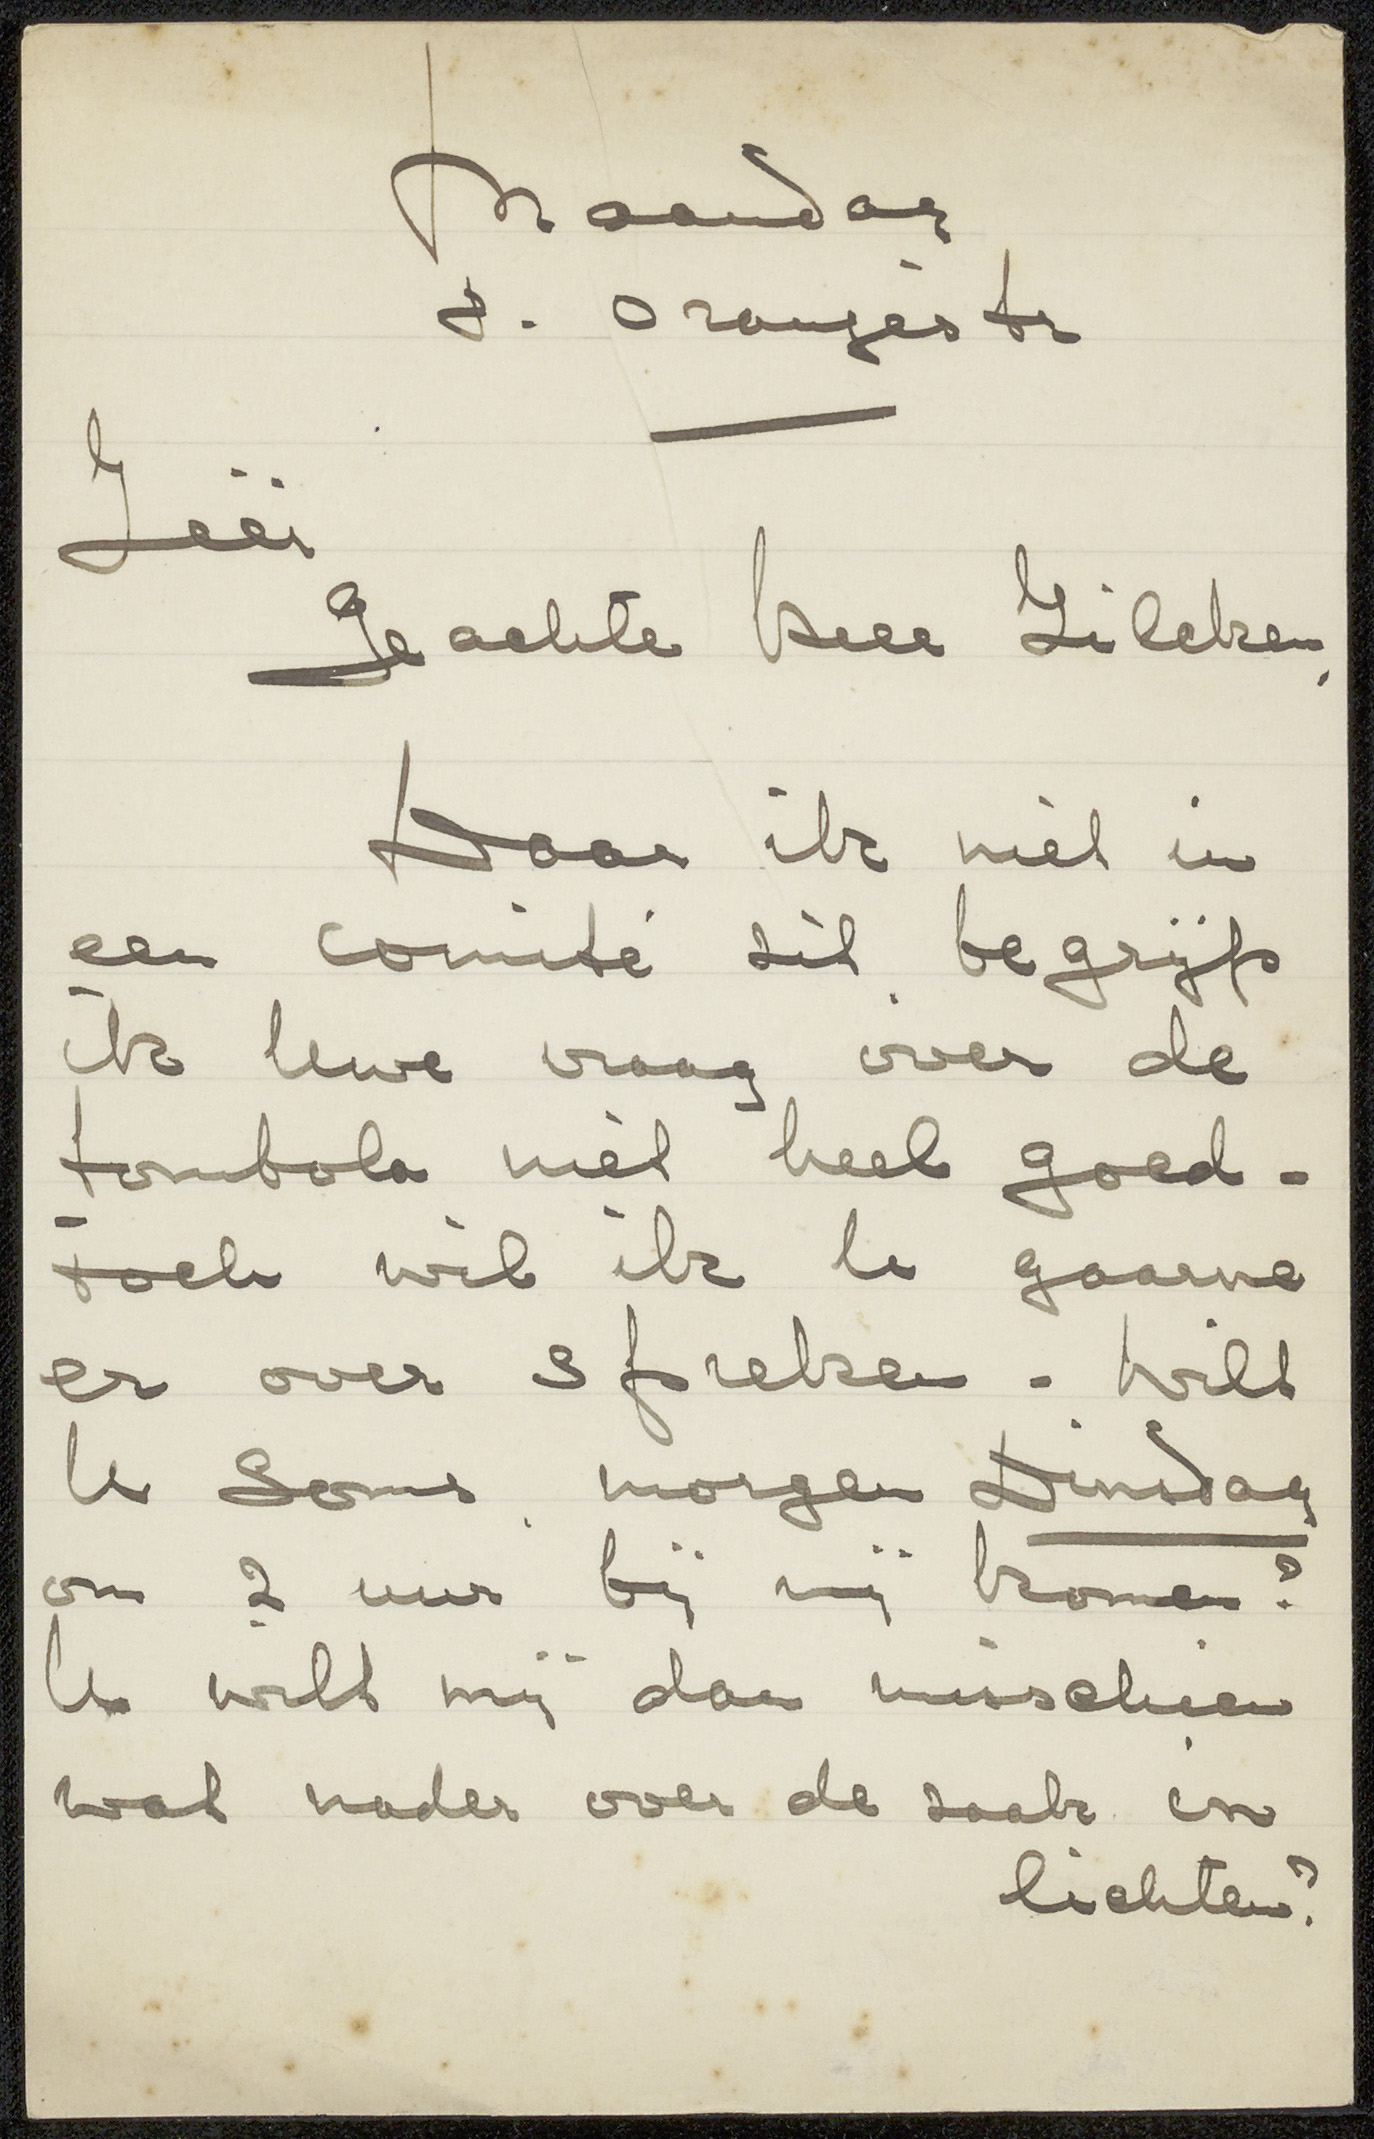 Maandag
8. Oranjestr
Zeër
Geachte heer Zilcken,
Daar ik niet in
een comité zit begrijp
ik Uwe vraag over de
tombola niet heel goed -
toch wil ik U gaarne
er over spreken - Wilt
U soms morgen Dinsdag
om 2 uur bij mij komen?
U wilt mij dan misschien
wat nader over de zaak in
lichten?